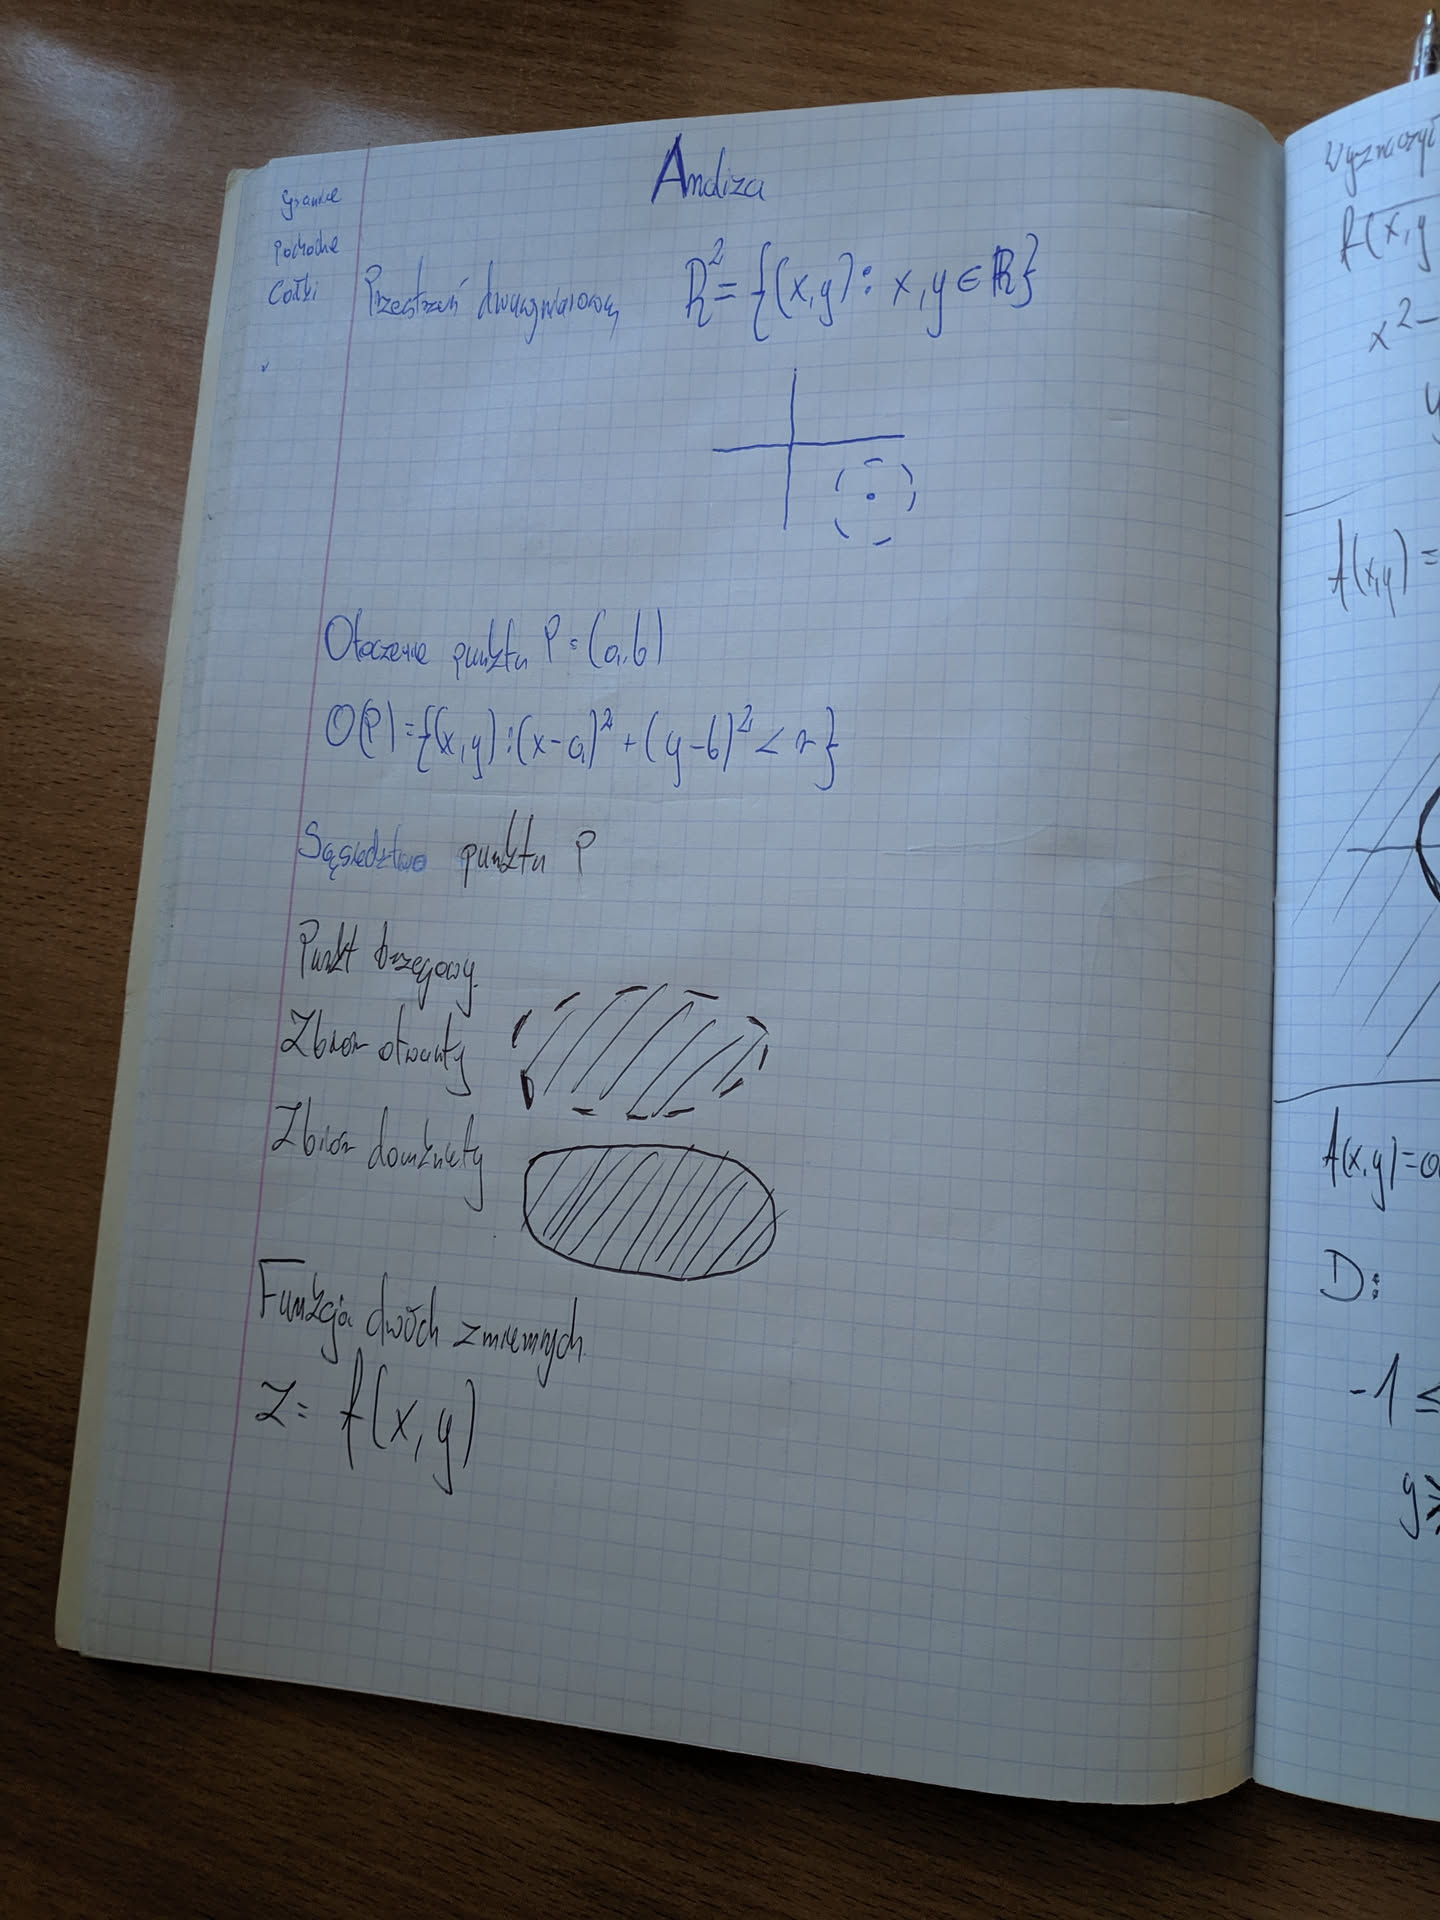 Analiza
Granice
Pochodne
Całki
Przestrzeń dwuwymiarowa R² = {(x,y) : x,y ∈ R}
Otoczenie punktu P = (a,b)
O(P) = {(x,y) : (x-a)² + (y-b)² < r}
Sąsiedztwo punktu P
Punkt brzegowy.
Zbiór otwarty
Zbiór domknięty
Funkcja dwóch zmiennych.
z = f(x,y)
Wyznaczyć
f(x,y
x² -
y
f(x,y) =
f(x,y) = a
D:
-1 ≤
y ≥